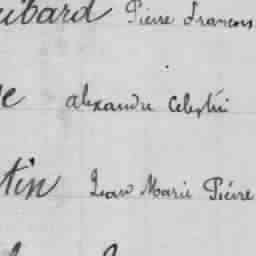 ibard Pierre Francois
e alexandre Celestin
tin Jean Marie Pierre